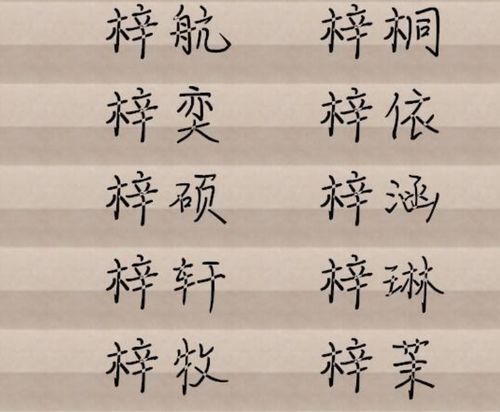 梓航 梓桐
梓奕 梓依
梓硕 梓涵
梓轩 梓琳
梓牧 梓茉